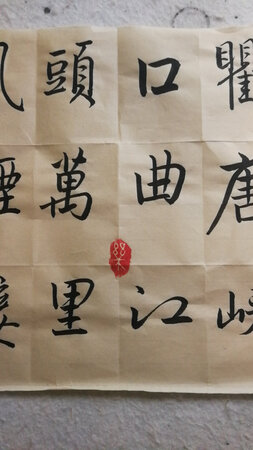 瞿唐峽
口曲江
頭萬里
風煙